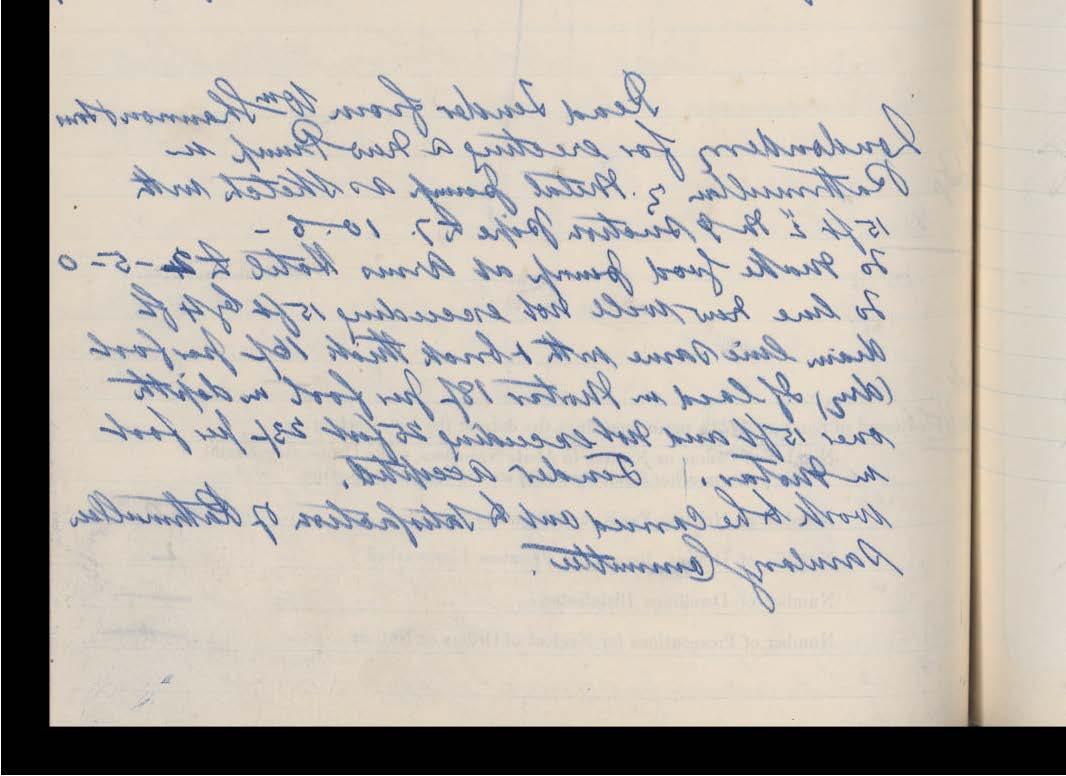 Read Tender from Wm Shannon & Son
Londonderry for erecting a New Pump in
Rathmullan. Metal pump as sketch with
15 ft 2" suction pipe £7. 10. 6 -
To make good pump at Arms Hotel £ - 5 - 0
To line new well not exceeding 15 ft by 4 ft
diam line same with brick thick 16/- per foot
(dry) If laid in Mortar 18/- per foot in depth
over 15 ft and not exceeding 25 feet 23/- per foot
in Mortar. Tender accepted
work to be carried out to satisfaction of Rathmullan
Sanitary Committee.
Number of Dwellings Disinfected
Number of Prosecutions for Neglect of Orders or Notices